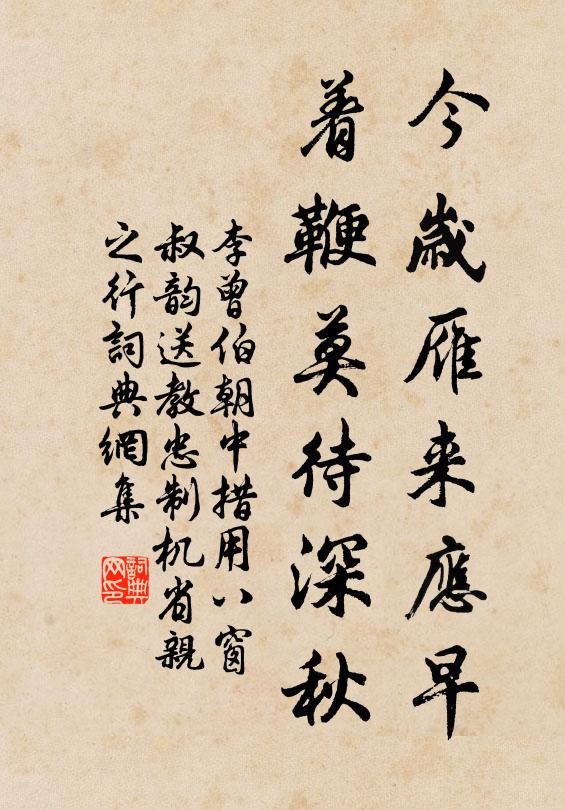 今歲雁来應早
着鞭莫待深秋
李曾伯朝中措用八窗
叔韵送教忠制机省親
之行詞典網集
詞典
网印